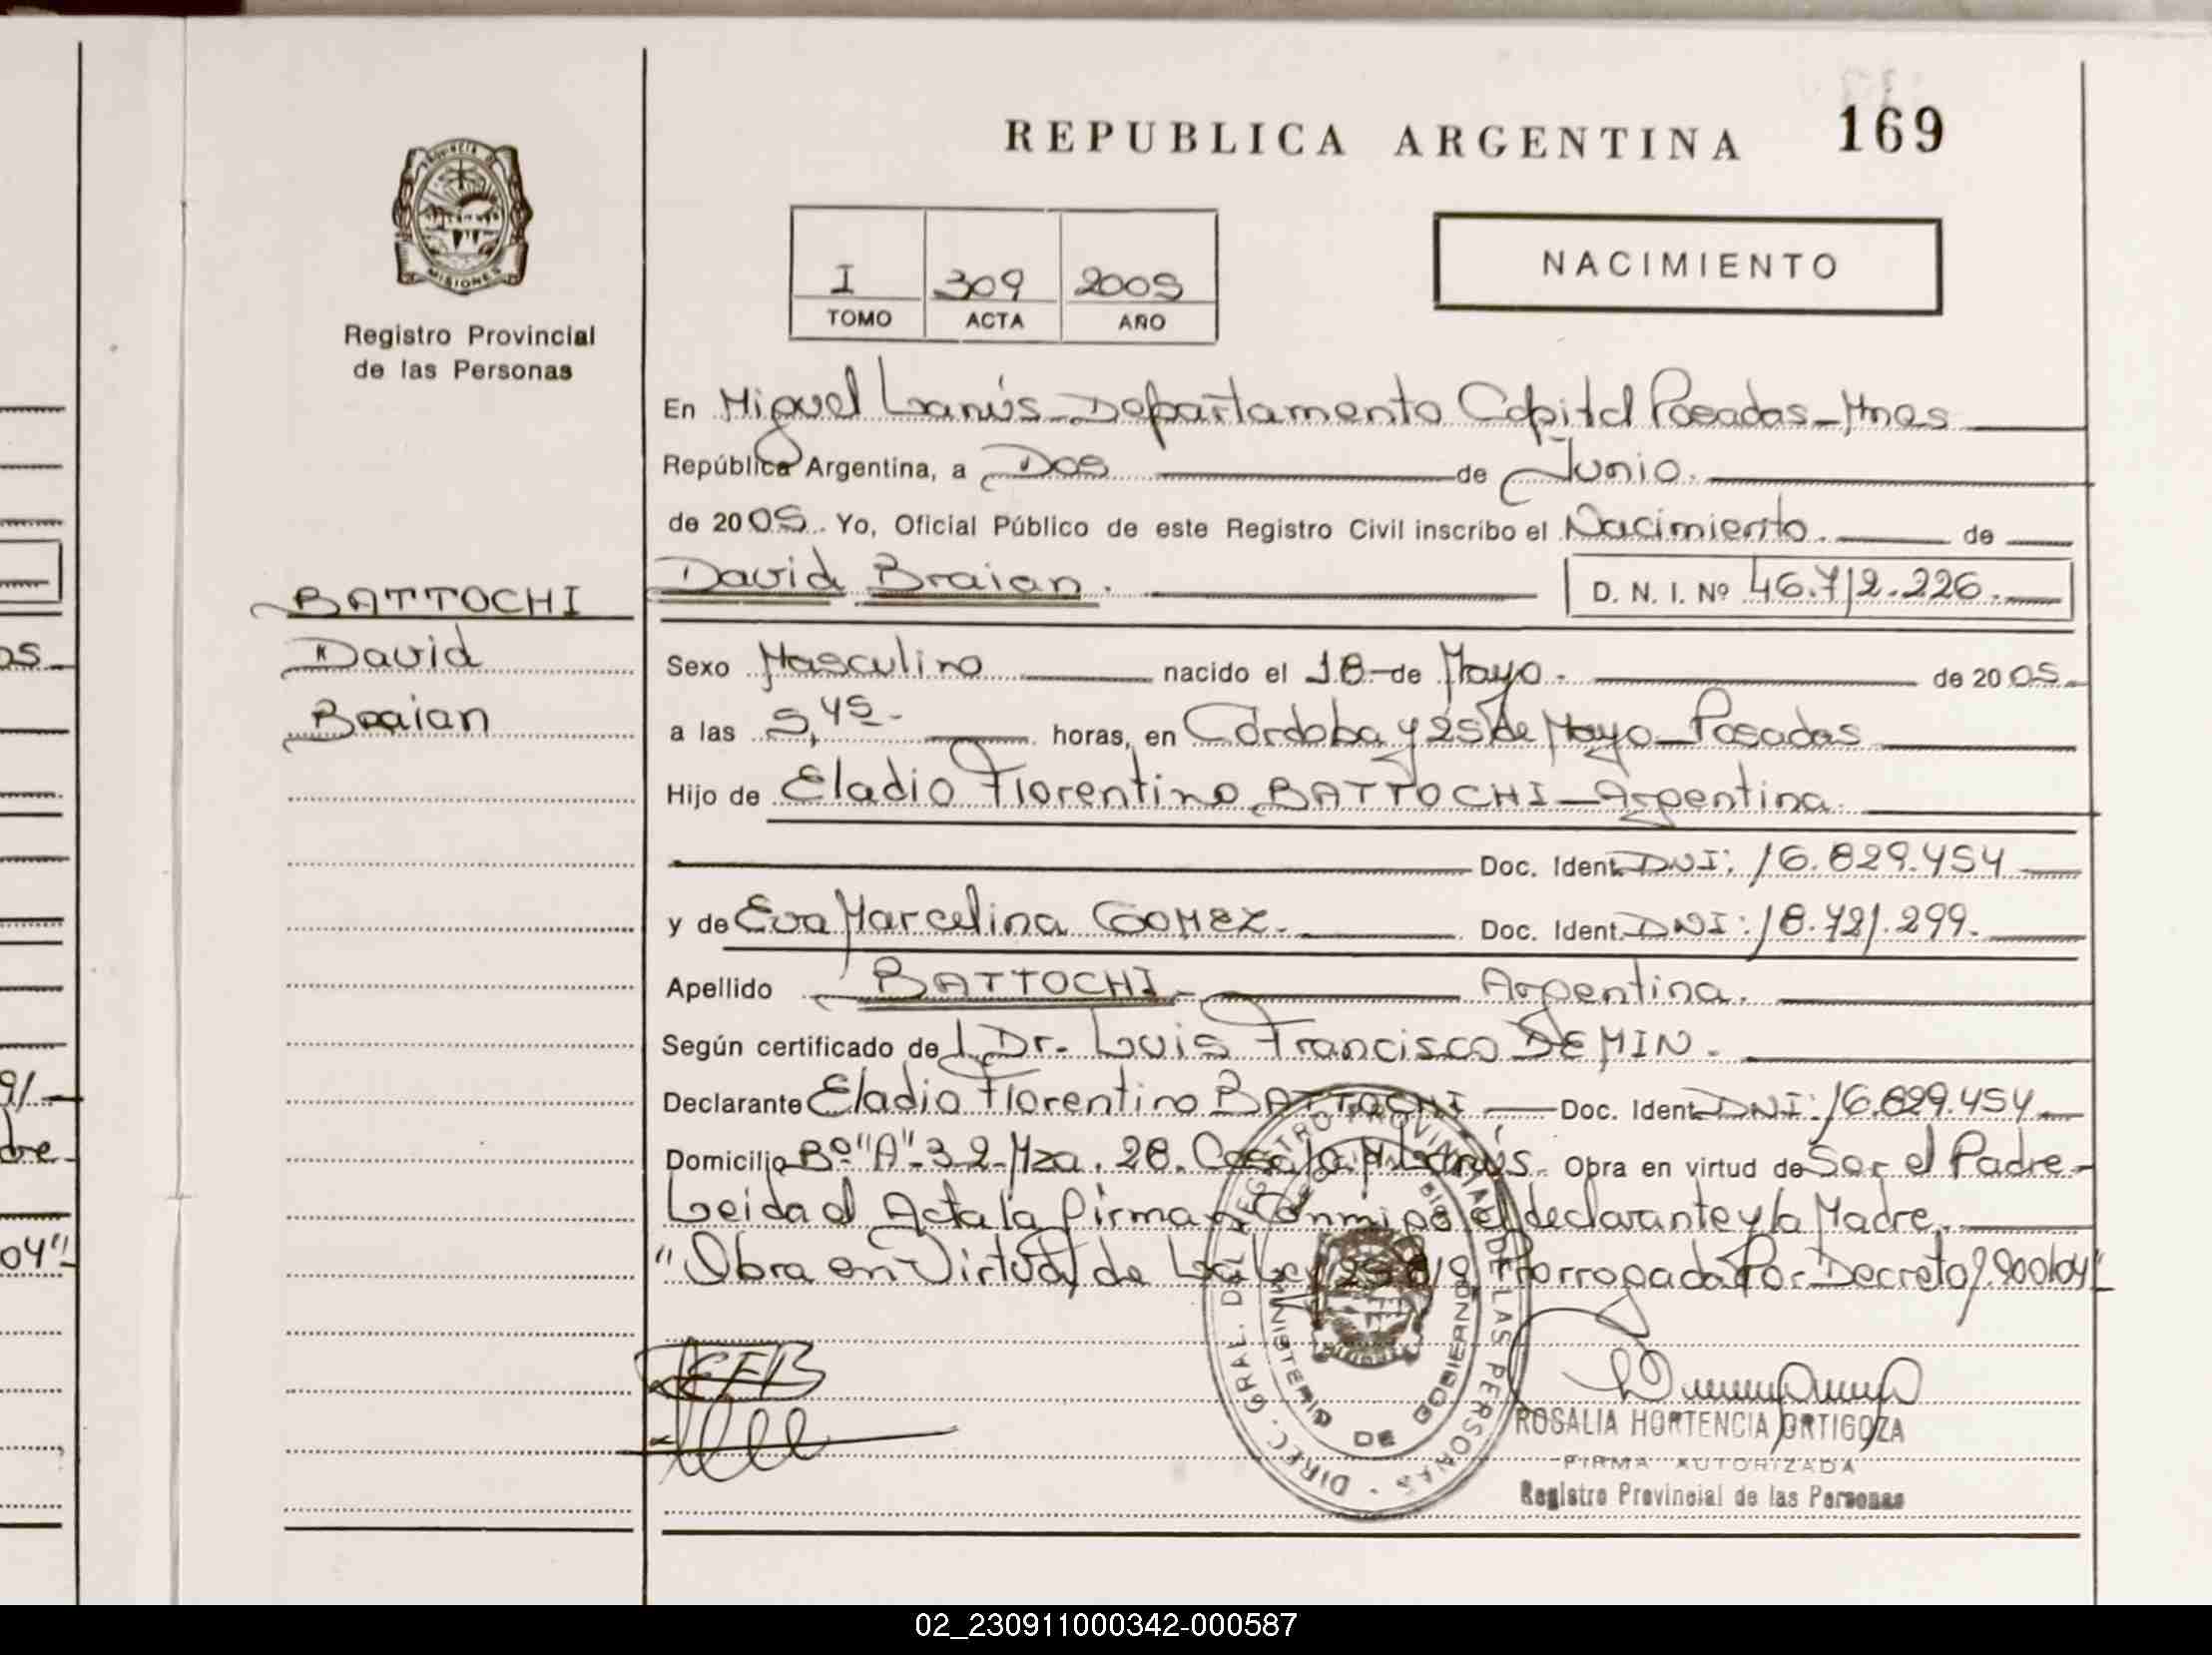 REPUBLICA ARGENTINA 169
PROVINCIA DE
MISIONES
Registro Provincial
de las Personas
I 309 2005
TOMO ACTA AÑO
NACIMIENTO
En Miguel Lanús - Departamento Capital Posadas - Mnes
República Argentina, a Dos de Junio.
de 2005. Yo, Oficial Público de este Registro Civil inscribo el Nacimiento. de
David Braian. D. N. I. Nº 46.712.226.
BATTOCHI
David
Braian
Sexo Masculino nacido el 18 de Mayo. de 2005.
a las 5,45 - horas, en Córdoba y 25 de Mayo - Posadas
Hijo de Eladio Florentino BATTOCHI - Argentina.
Doc. Ident. DNI: 16.829.454
y de Eva Marcelina GOMEZ. Doc. Ident. DNI: 18.721.299.
Apellido BATTOCHI - Argentina.
Según certificado de l Dr. Luis Francisco DEMIN.
Declarante Eladio Florentino BATTOCHI Doc. Ident. DNI: 16.829.454
Domicilio Bº "A" 3 2 Mza. 28. Casa M. Lanús. Obra en virtud de Ser el Padre
Leida el Acta la firman Conmigo el declarante y la Madre.
"Obra en Virtud de La Ley Prorrogada Por Decreto 1.900/04"
DIREC. GRAL. DEL REGISTRO PROVINCIAL DE LAS PERSONAS
MINISTERIO DE GOBIERNO
ROSALIA HORTENCIA ORTIGOZA
FIRMA AUTORIZADA
Registro Provincial de las Personas
as
9/
dre
04"
02_230911000342-000587